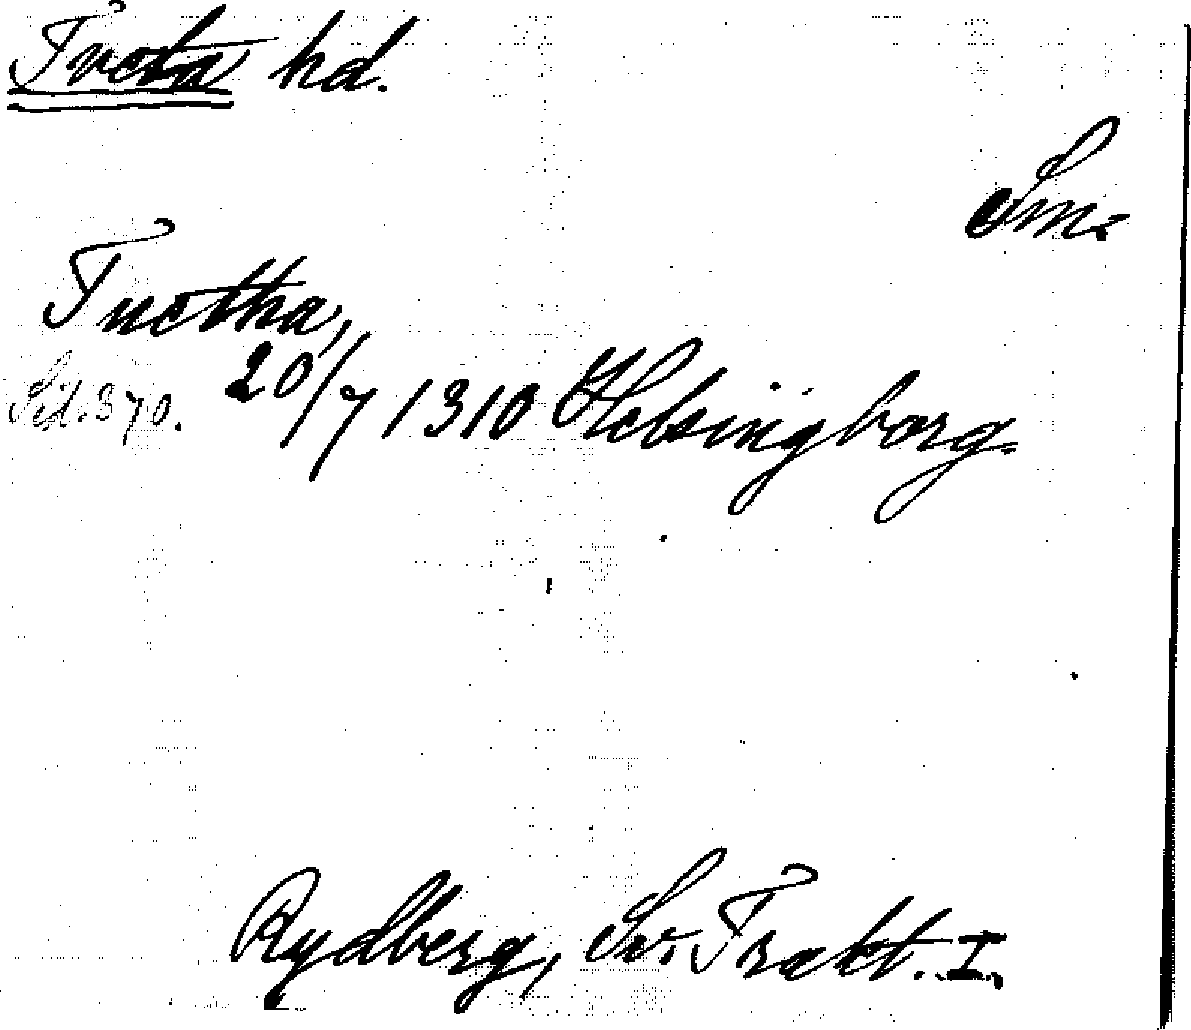 Tveta hd.
Sm.
Tuetha,
Sid. 370. 20/7 1310 Helsingborg.
Rydberg, Sv. Trakt. I.